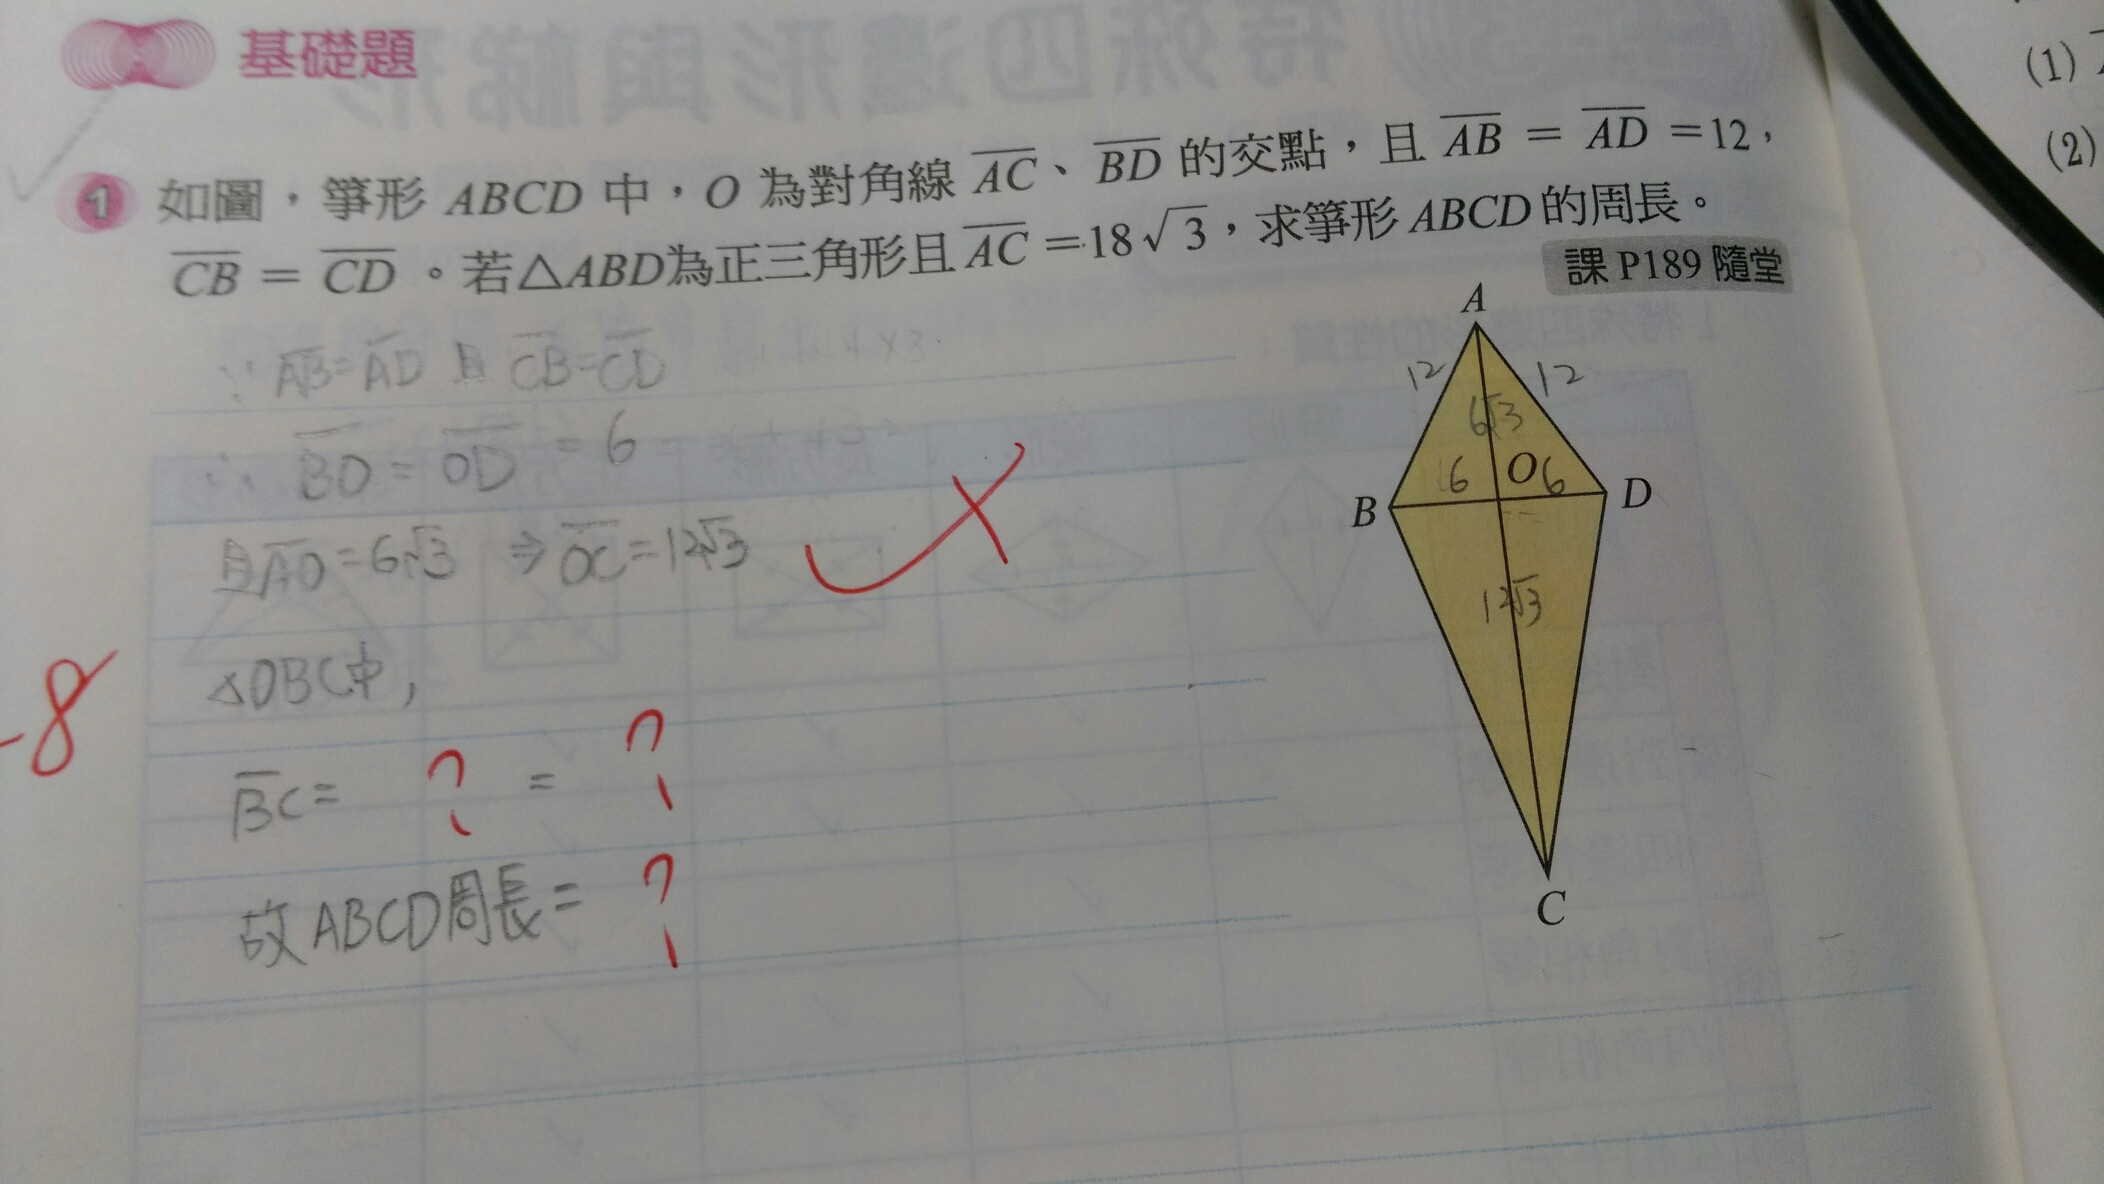 基礎題
1 如圖，箏形 ABCD 中，O 為對角線 AC、BD 的交點，且 AB = AD =12，
CB = CD。若△ABD為正三角形且 AC =18√3，求箏形 ABCD 的周長。
課 P189 隨堂
∵ AB=AD 且 CB=CD
∴ BO = OD = 6
且AO=6√3 ⇒ OC=12√3
△OBC中，
BC= ? = ?
故ABCD周長= ?
-8
A
12
12
6√3
B
6
O
6
D
12√3
C
(1)
(2)